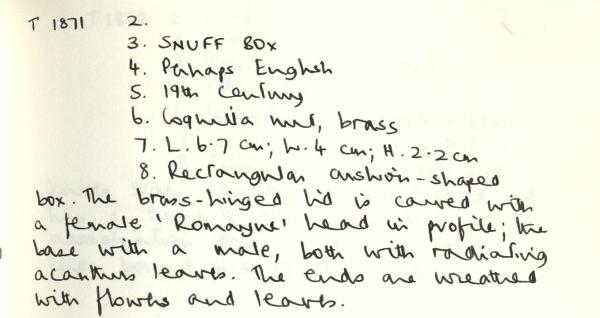 T 1871 2.
3. SNUFF BOX
4. Perhaps English
5. 19th Century
6. Coquilla nut, brass
7. L. 6.7 cm; W. 4 cm; H. 2.2 cm
8. Rectangular cushion-shaped
box. The brass-hinged lid is carved with
a female 'Romayne' head in profile; the
base with a male, both with radiating
acanthus leaves. The ends are wreathed
with flowers and leaves.